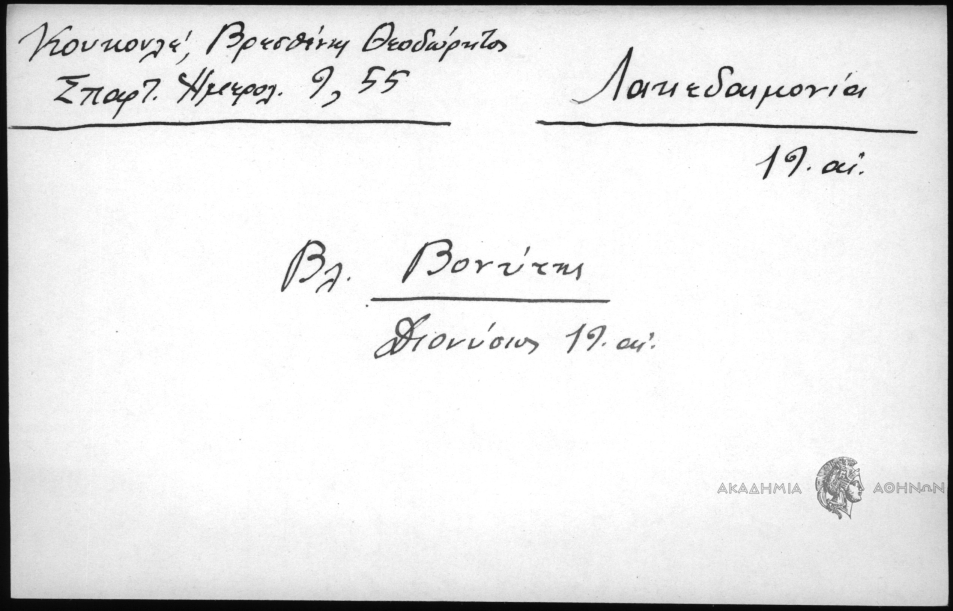 Κουκουλέ, Βρεσθένης Θεοδώρητος
Σπαρτ. Ημερολ. 9, 55
Λακεδαιμονία
19. αι.
Βλ. Βοντύτης
Διονύσιος 19. αι.
ΑΚΑΔΗΜΙΑ ΑΘΗΝΩΝ